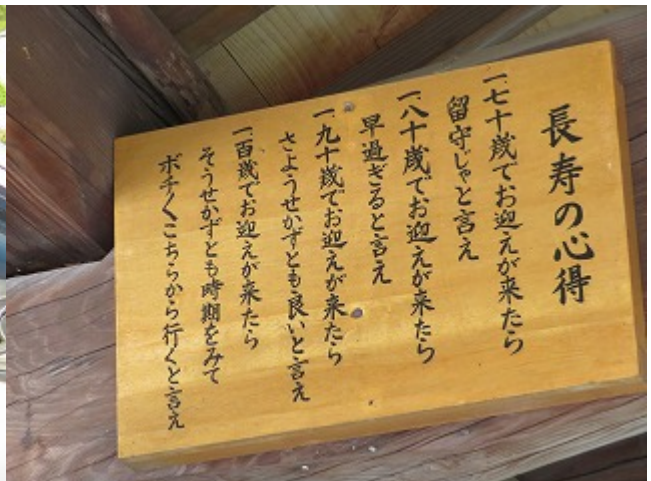 長寿の心得
一、七十歳でお迎えが来たら
留守じゃと言え
一、八十歳でお迎えが来たら
早過ぎると言え
一、九十歳でお迎えが来たら
さようせかずとも良いと言え
一、百歳でお迎えが来たら
そうせかずとも時期をみて
ボチ〱こちらから行くと言え